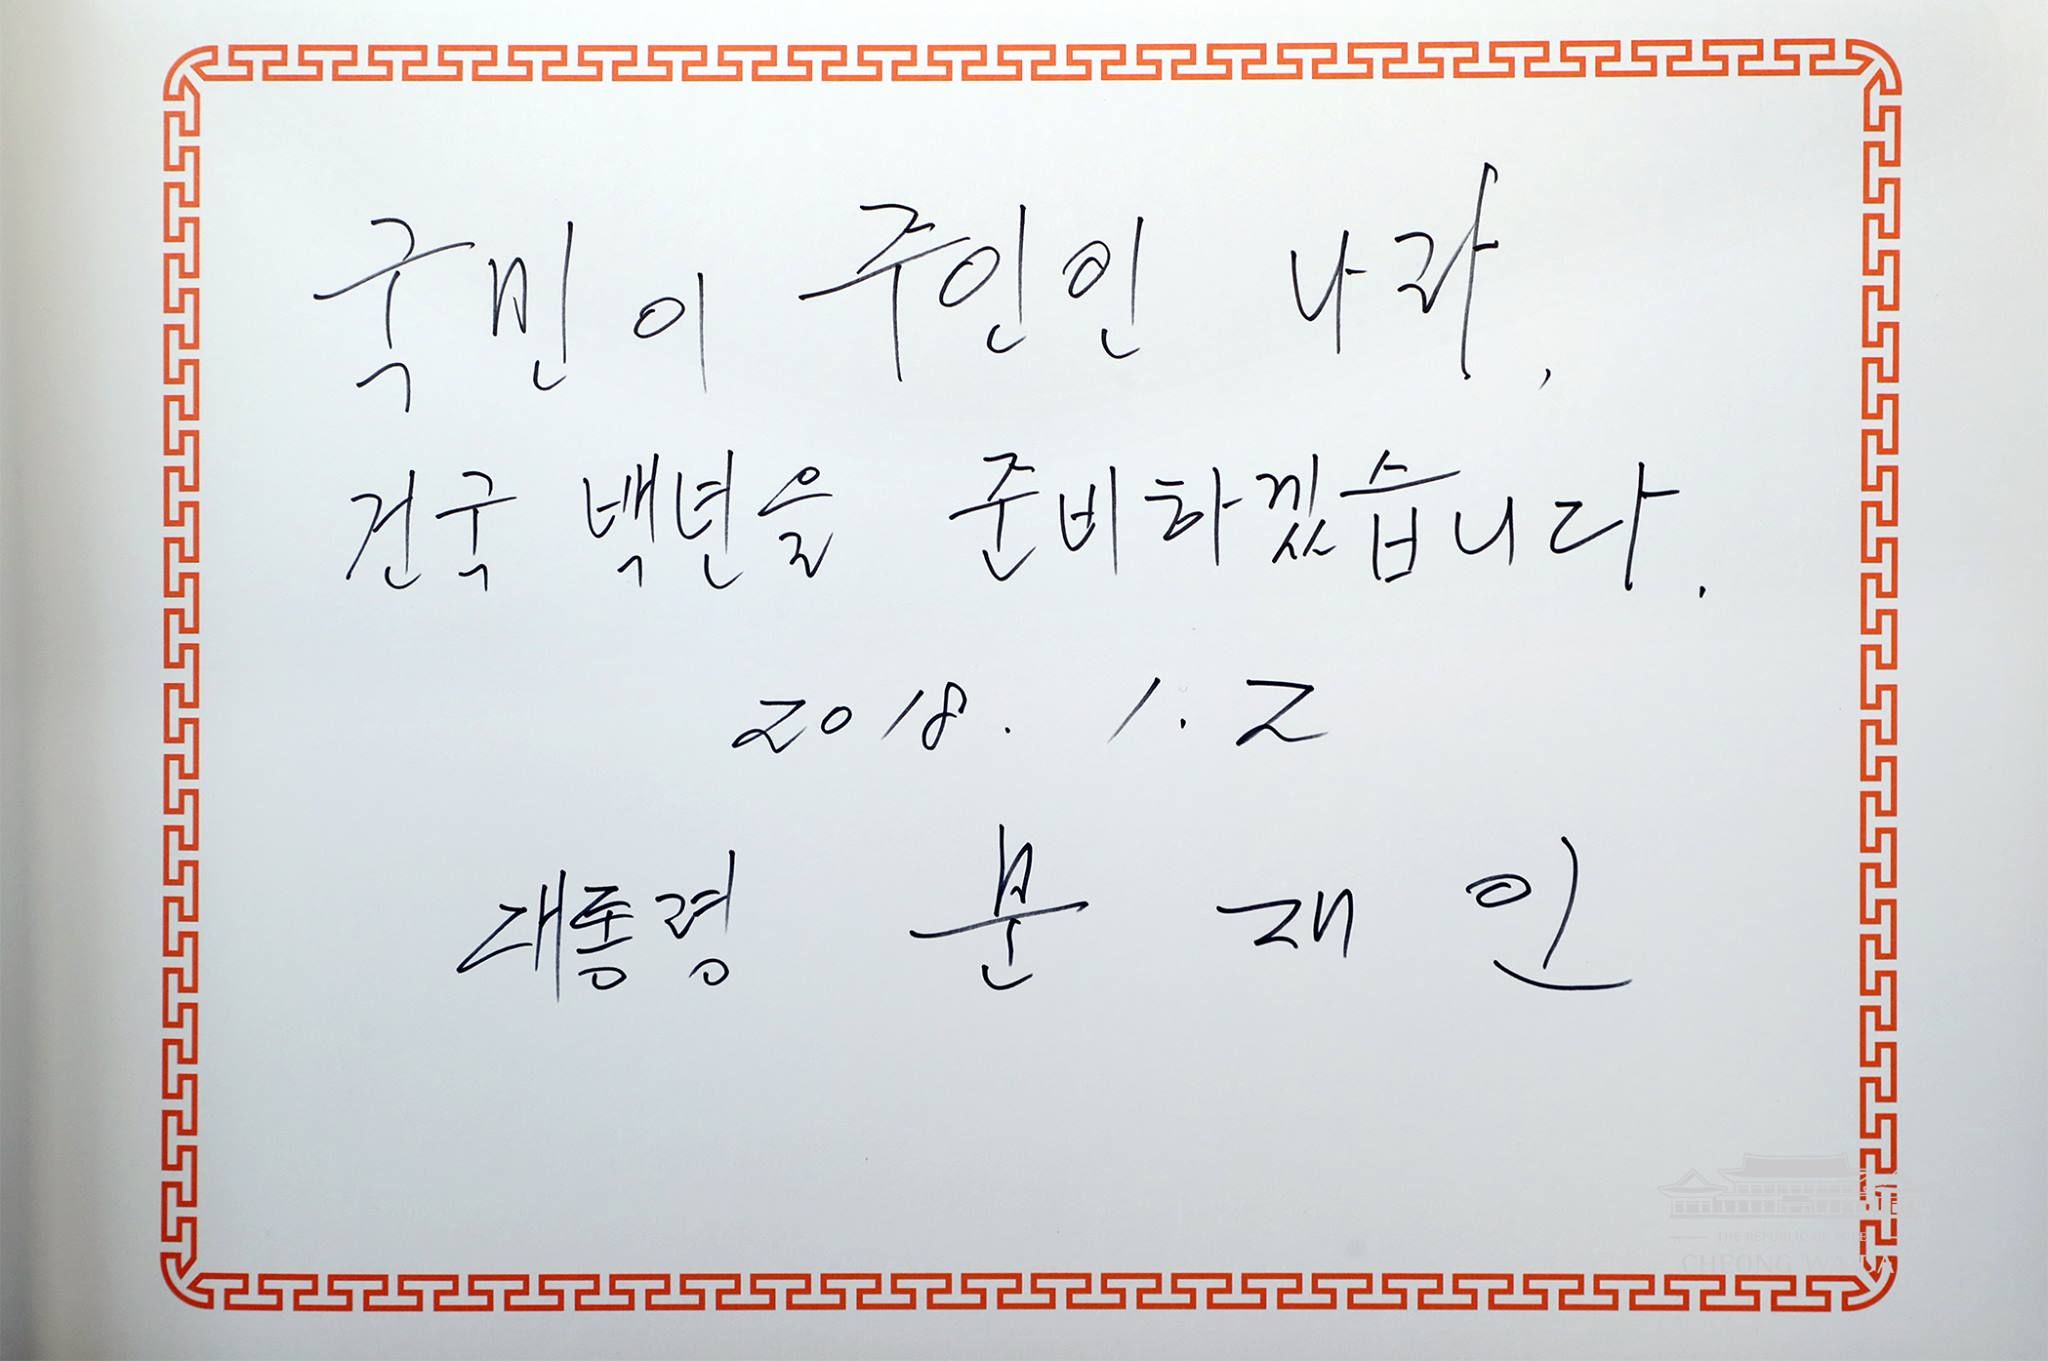 국민이 주인인 나라,
건국 백년을 준비하겠습니다.
2018. 1. 2
대통령 문재인
THE REPUBLIC OF KOREA
CHEONG WA DAE